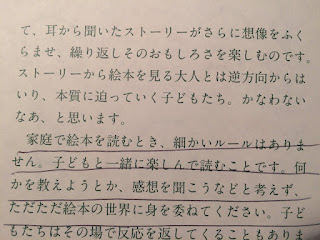 て、耳から聞いたストーリーがさらに想像をふく
らませ、繰り返しそのおもしろさを楽しむのです。
ストーリーから絵本を見る大人とは逆方向からは
いり、本質に迫っていく子どもたち。かなわない
なあ、と思います。
家庭で絵本を読むとき、細かいルールはありま
せん。子どもと一緒に楽しんで読むことです。何
かを教えようとか、感想を聞こうなどと考えず、
ただただ絵本の世界に身を委ねてください。子ど
もたちはその場で反応を返してくることもありま